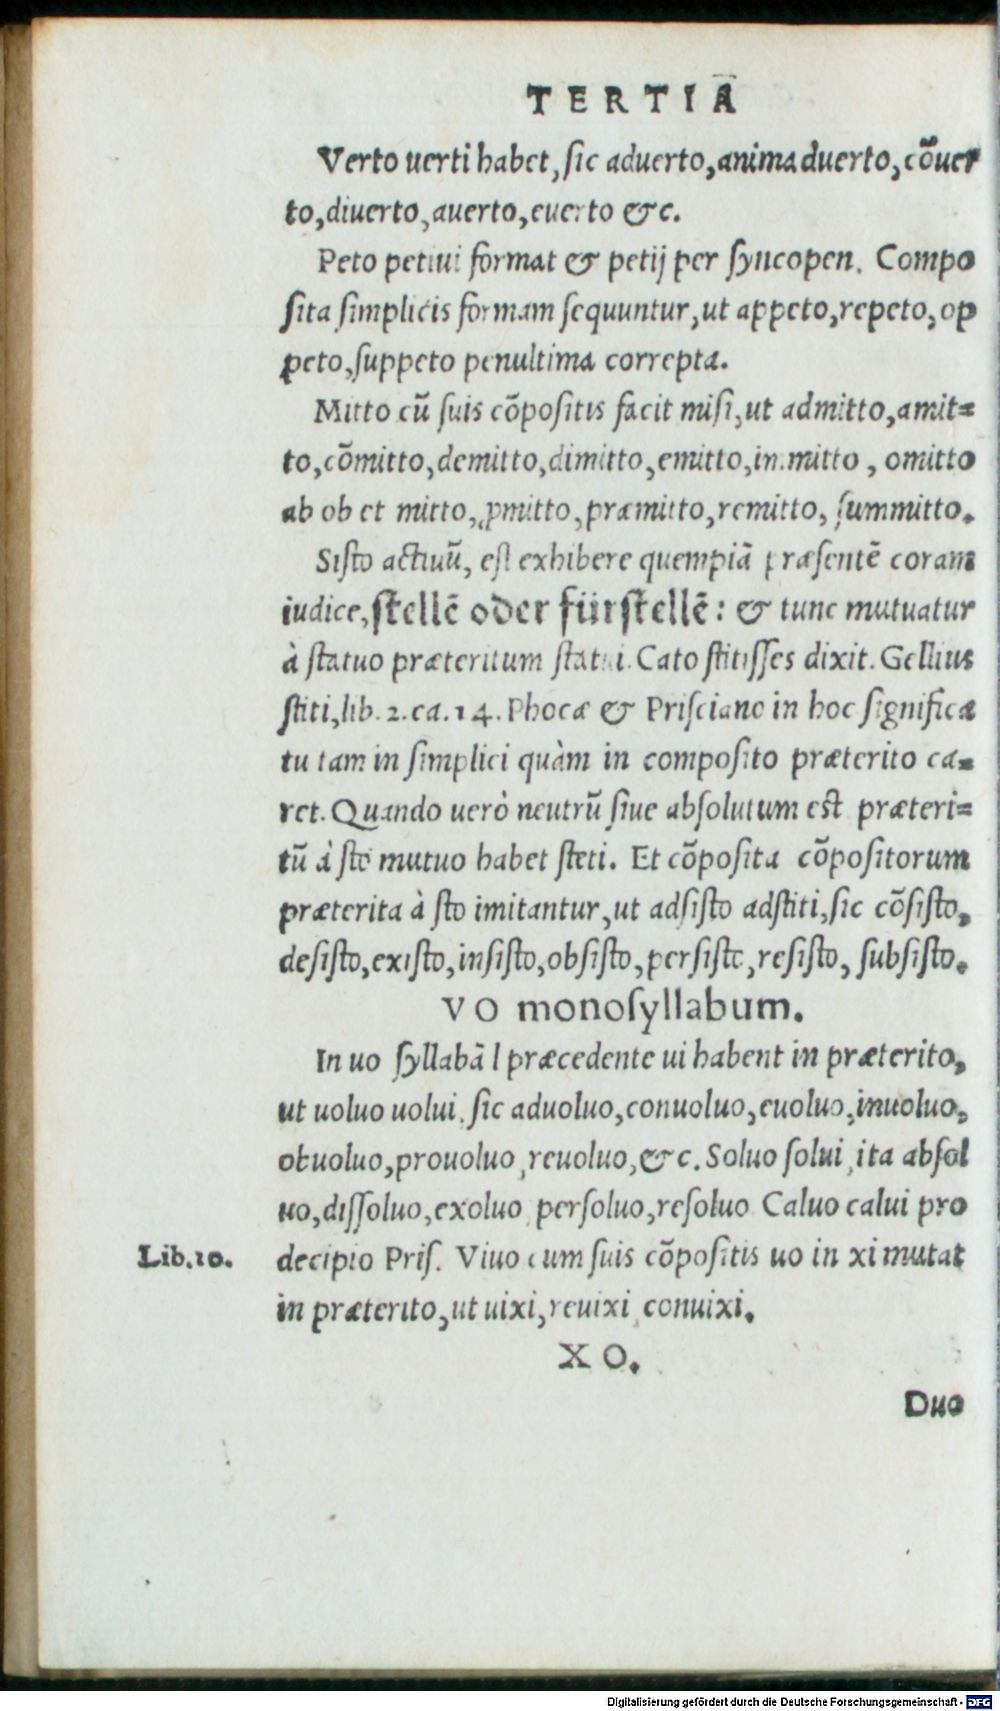 TERTIA
Verto uerti habet, ſic aduerto, anima duerto, cōuer
to, diuerto, auerto, euerto &c.
Peto petiui format & petij per ſyncopen. Compo
ſita ſimplicis formam ſequuntur, ut appeto, repeto, op
peto, ſuppeto penultima correpta.
Mitto cū ſuis cōpoſitis facit miſi, ut admitto, amit=
to, cōmitto, demitto, dimitto, emitto, immitto, omitto
ab ob et mitto, ꝓmitto, præmitto, remitto, ſummitto.
Siſto actiuū, eſt exhibere quempiā præſentē coram
iudice, ſtellē oder fürſtellē: & tunc mutuatur
à ſtatuo præteritum ſtatui. Cato ſtitiſſes dixit. Gellius
ſtiti, lib. 2. ca. 14. Phocæ & Priſciano in hoc ſignifica
tu tam in ſimplici quàm in compoſito præterito ca=
ret. Quando uerò neutrū ſiue abſolutum eſt præteri=
tū à ſto mutuo habet ſteti. Et cōpoſita cōpoſitorum
præterita à ſto imitantur, ut adſiſto adſtiti, ſic cōſiſto,
deſiſto, exiſto, inſiſto, obſiſto, perſiſto, reſiſto, ſubſiſto.
VO monoſyllabum.
In uo ſyllabā l præcedente ui habent in præterito,
ut uoluo uolui, ſic aduoluo, conuoluo, euoluo, inuoluo,
obuoluo, prouoluo, reuoluo, &c. Soluo ſolui, ita abſol
uo, diſſoluo, exoluo, perſoluo, reſoluo Caluo calui pro
Lib. 10. decipio Priſ. Viuo cum ſuis cōpoſitis uo in xi mutat
in præterito, ut uixi, reuixi, conuixi.
XO.
Duo
Digitalisierung gefördert durch die Deutsche Forschungsgemeinschaft - DFG